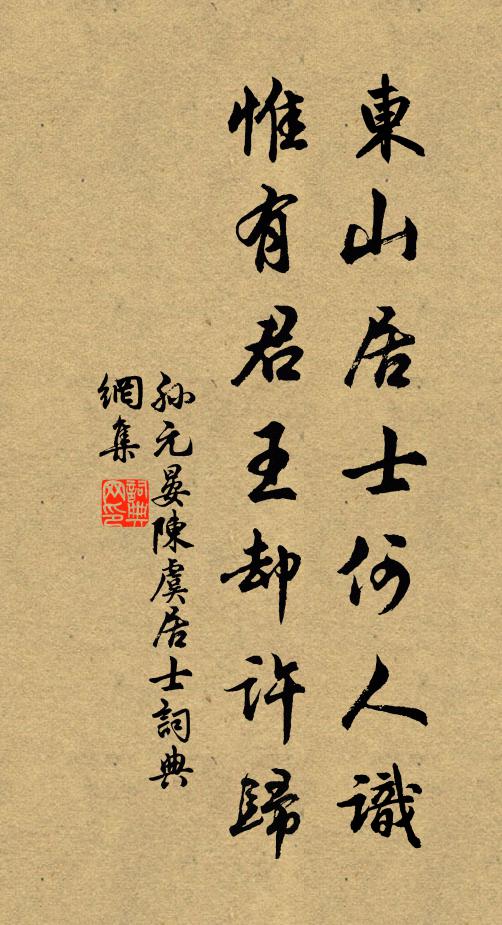 東山居士何人識
惟有君王却許歸
孙元晏陳虞居士詞典
網集
詞典
网印